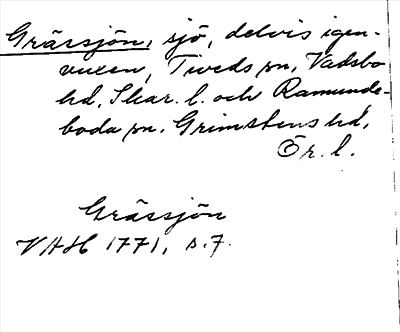 Grässjön, sjö, delvis igen-
vuxen, Tiveds sn, Vadsbo
hd, Skar. l. och Ramunde-
boda sn, Grimstens hd,
Ör. l.
Grässjön
VAH 1771, s. 7.